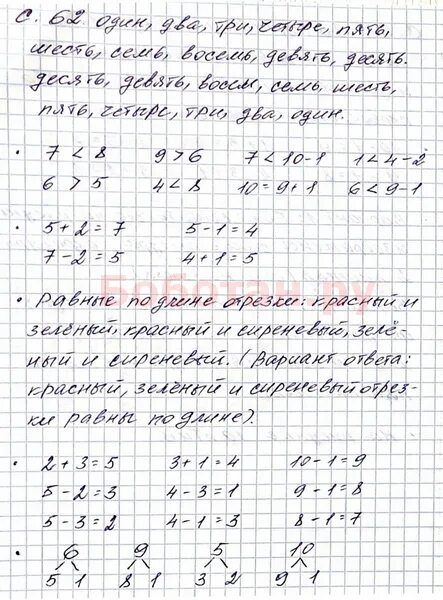 с. 62 один, два, три, четыре, пять,
шесть, семь, восемь, девять, десять.
десять, девять, восем, семь, шесть,
пять, четыре, три, два, один.
• 7 < 8 9 > 6 7 < 10-1 1 < 4-2
6 > 5 4 < 8 10 = 9+1 6 < 9-1
• 5+2=7 5-1=4
7-2=5 4+1=5
Боботан.ру
• Равные по длине отрезки: красный и
зелёный, красный и сиреневый, зелё-
ный и сиреневый. (Вариант ответа:
красный, зелёный и сиреневый отрез-
ки равны по длине).
• 2+3=5 3+1=4 10-1=9
5-2=3 4-3=1 9-1=8
5-3=2 4-1=3 8-1=7
• 6 9 5 10
5 1 8 1 3 2 9 1